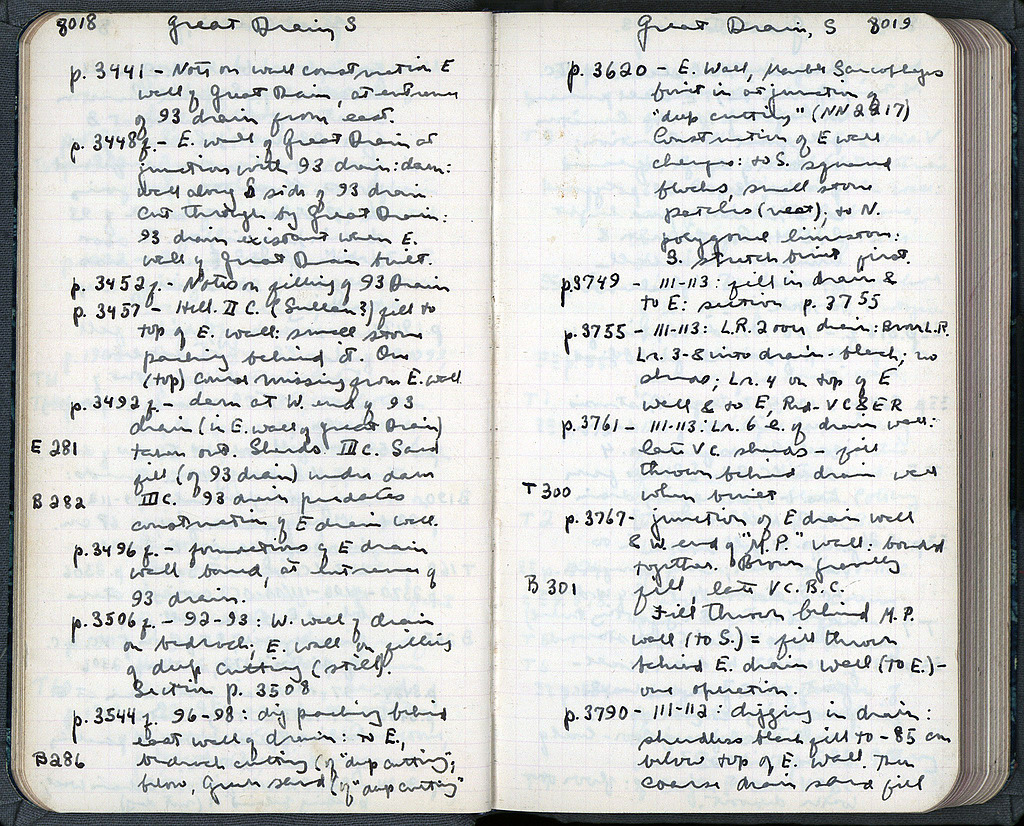 8018 Great Drain, S
p. 3441 - Notes on wall construction E
wall of Great Drain, at entrance
of 93 drain from east.
p. 3448 f. - E. wall of Great Drain at
junction with 93 drain: dam:
wall along S side of 93 drain
cut through by Great Drain:
93 drain existant when E.
wall of Great Drain built.
p. 3452 f. - Notes on filling of 93 Drain
p. 3457 - Hell. II C. (Sullan?) fill to
top of E. wall: small stone
packing behind it. One
(top) course missing from E. wall
p. 3492 f. - dam at W. end of 93
drain (in E. wall of Great Drain)
E 281 taken out. Sherds III C. Sand
fill (of 93 drain) under dam
B 282 III C. 93 drain predates
construction of E drain wall.
p. 3496 f. - foundations of E drain
wall bared, at entrance of
93 drain.
p. 3506 f. - 92-93: W. wall of drain
on bedrock; E. wall on filling
of deep cutting (still).
Section p. 3508
p. 3544 f. 96-98: dig packing behind
east wall of drain: to E.,
B 286 bedrock cutting (of "deep cutting";
below, green sand (of "deep cutting"
Great Drain, S 8019
p. 3620 - E. Wall, Marble Sarcophagus
built in at junction of
"deep cutting" (NN 2217)
Construction of E wall
changes: to S. squared
blocks, small stone
patches (neat); to N.
polygonal limestone:
S. stretch built first.
p. 3749 - 111-113: fill in drain &
to E: section p. 3755
p. 3755 - 111-113: L.R. 2 over drain: Brown L.R.
Lr. 3-8 into drain - black; no
sherds; Lr. 4 on top of E
wall & to E, Red - V C & E R
p. 3761 - 111-113: Lr. 6 e. of drain wall:
late V C. sherds - fill
thrown behind drain wall
T 300 when built
p. 3767 - junction of E drain wall
& W. end of "M.P." wall: bonded
together. Brown gravelly
B 301 fill late V C. B.C.
Fill thrown behind M.P.
wall (to S.) = fill thrown
behind E. drain wall (to E.) -
one operation.
p. 3790 - 111-112: digging in drain:
sherdless black fill to -85 cm
below top of E. wall. Then
coarse drain sand fill